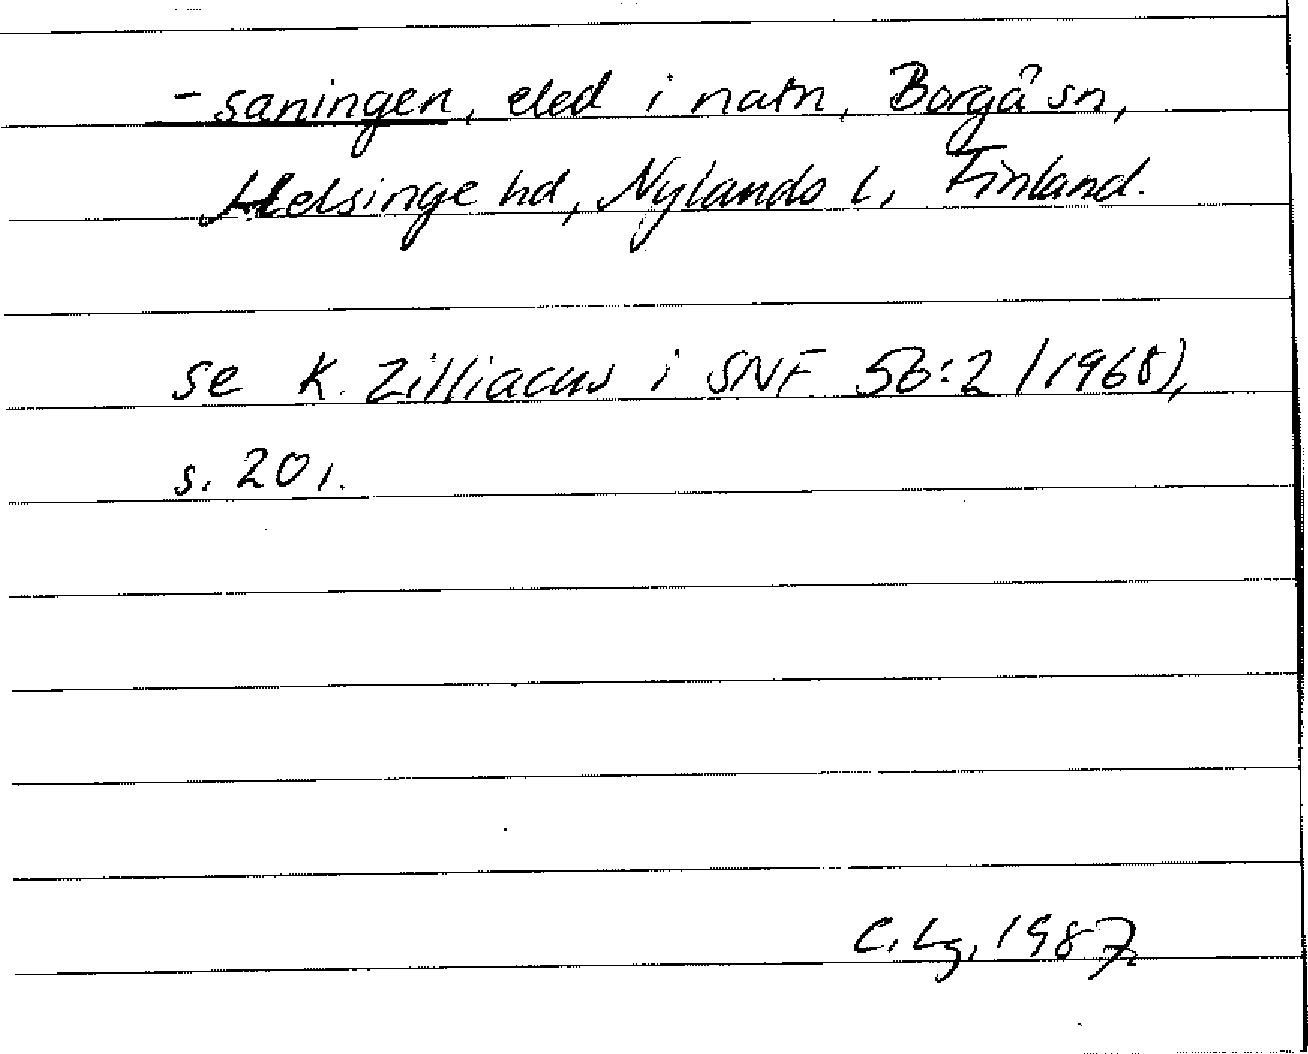 -saningen, eled i natn, Borgå sn,
Helsinge hd, Nylands l, Finland.
se K. Zilliacus i SNF 56:2 (1968),
s. 201.
C. Lg, 1987